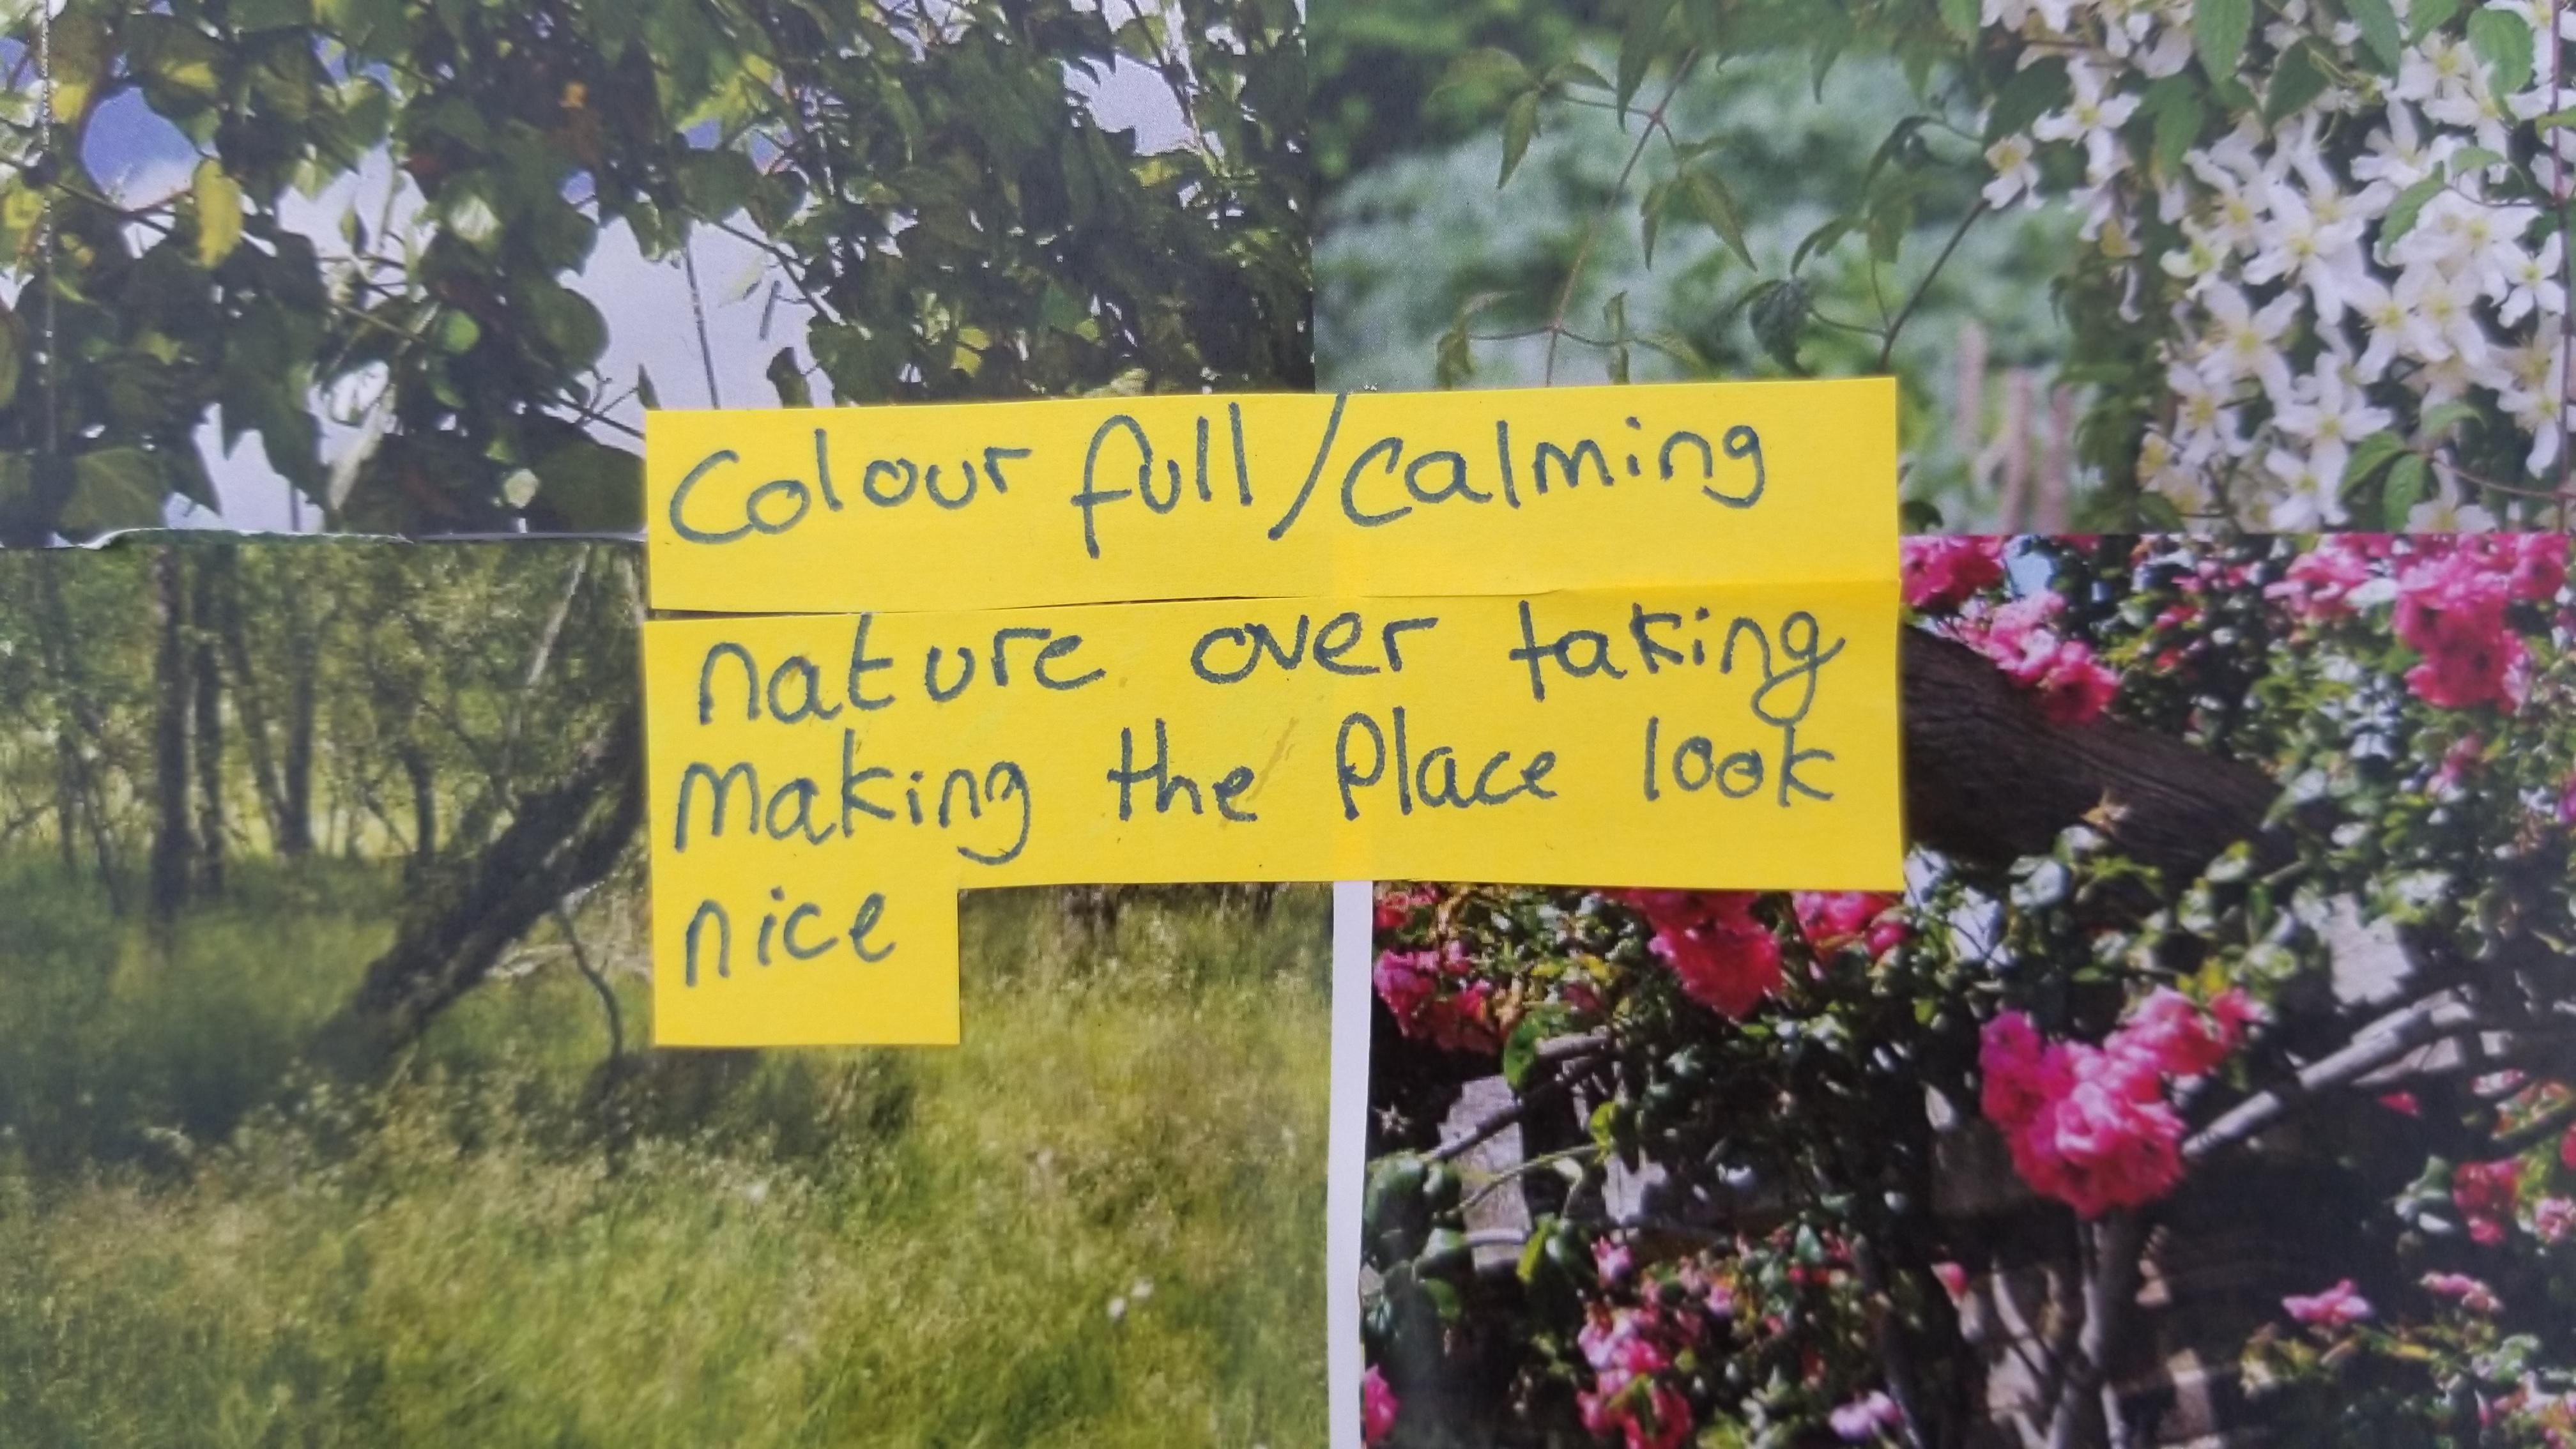 Colour full/calming
nature over taking
Making the Place look
nice